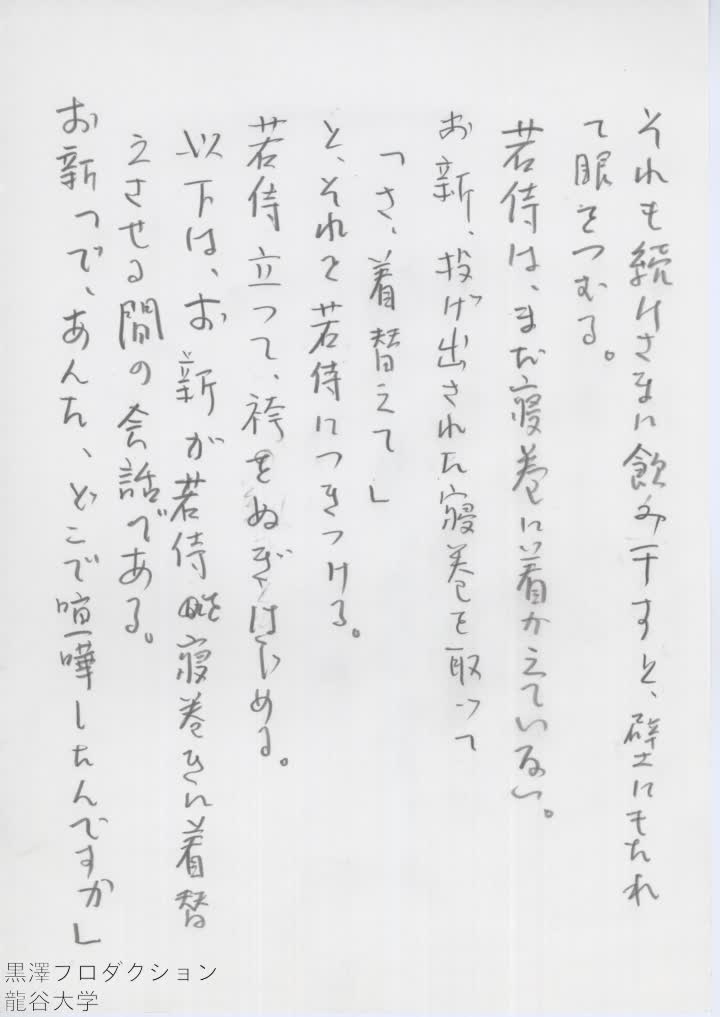 それも続けさまに飲み干すと、壁にもたれ
て眼をつむる。
若侍は、まだ寝巻に着かえていない。
お新、投げ出された寝巻を取って
「さ、着替えて」
と、それを若侍につきつける。
若侍立って、袴をぬぎはじめる。
以下は、お新が若侍を寝巻きに着替
えさせる間の会話である。
お新「で、あんた、どこで喧嘩したんですか」
黒澤プロダクション
龍谷大学